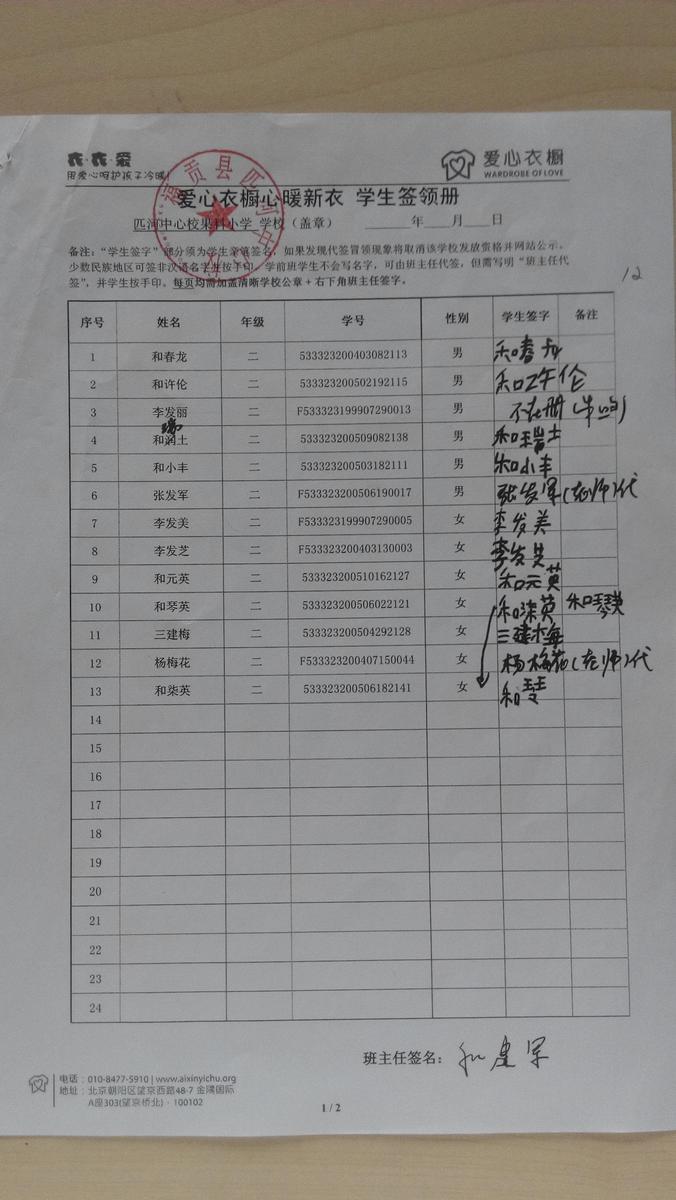 衣·衣·爱
用爱心呵护孩子冷暖!
爱心衣橱
WARDROBE OF LOVE
福贡县匹河中
爱心衣橱心暖新衣 学生签领册
匹河中心校果科小学 学校（盖章） 年 月 日
备注：“学生签字”部分须为学生亲笔签名，如果发现代签冒领现象将取消该学校发放资格并网站公示。
少数民族地区可签非汉语名字且按手印。学前班学生不会写名字，可由班主任代签，但需写明“班主任代
签”，并学生按手印。每页均需加盖清晰学校公章+右下角班主任签字。
12
序号 姓名 年级 学号 性别 学生签字 备注
1 和春龙 二 533323200403082113 男 和春
2 和许伦 二 533323200502192115 男 和许伦
3 李发丽 二 F533323199907290013 男 不在册
瑞
4 和润土 二 533323200509082138 男 和瑞土
5 和小丰 二 533323200503182111 男 和小丰
6 张发军 二 F533323200506190017 男 张发军(老师)代
7 李发美 二 F533323199907290005 女 李发美
8 李发芝 二 F533323200403130003 女 李发芝
9 和元英 二 533323200510162127 女 和元英
10 和琴英 二 533323200506022121 女 和柒英 和琴英
11 三建梅 二 533323200504292128 女 三建梅
12 杨梅花 二 F533323200407150044 女 杨梅花(老师)代
13 和柒英 二 533323200506182141 女 和
14
15
16
17
18
19
20
21
22
23
24
班主任签名： 和建军
电话：010-8477-5910 | www.aixinyichu.org
地址：北京朝阳区望京西路48-7 金隅国际
A座303(望京桥北) · 100102
1 / 2